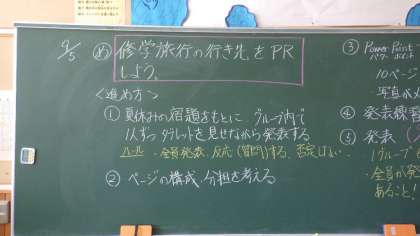 9/5
め 修学旅行の行き先をPR
しよう。
<進め方>
① 夏休みの宿題をもとに、グループ内で
1人ずつ タブレットを見せながら発表する
ルール・全員発表、反応(質問)する、否定しない
② ページの構成、分担を考える
③ Power Point
パワー ポイント
10ページ
写真がメ
④ 発表練習
⑤ 発表
1グループ
・全員が発
あること!